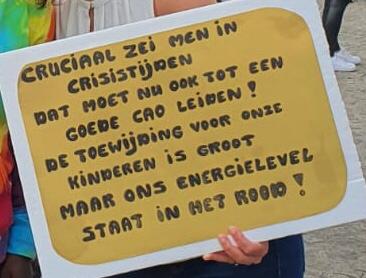 CRUCIAAL ZEI MEN IN
CRISISTIJDEN
DAT MOET NU OOK TOT EEN
GOEDE CAO LEIDEN!
DE TOEWIJDING VOOR ONZE
KINDEREN IS GROOT
MAAR ONS ENERGIELEVEL
STAAT IN HET ROOD!